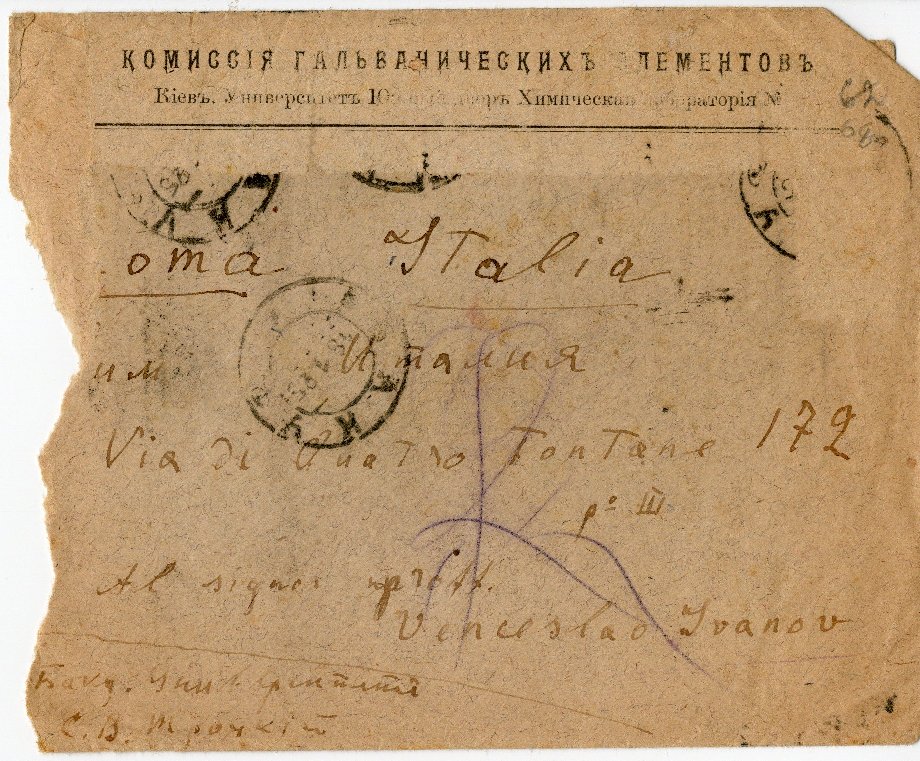 КОМИССІЯ ГАЛЬВАНИЧЕСКИХЪ ЭЛЕМЕНТОВЪ
Кіевъ. Университетъ Химическая лабораторія №
oma Italia
им Италия
Via di Quatro Fontane 172
pº III
Al signor proff.
Venceslao Ivanov
Баку. Университетъ
С. В. Троцкій